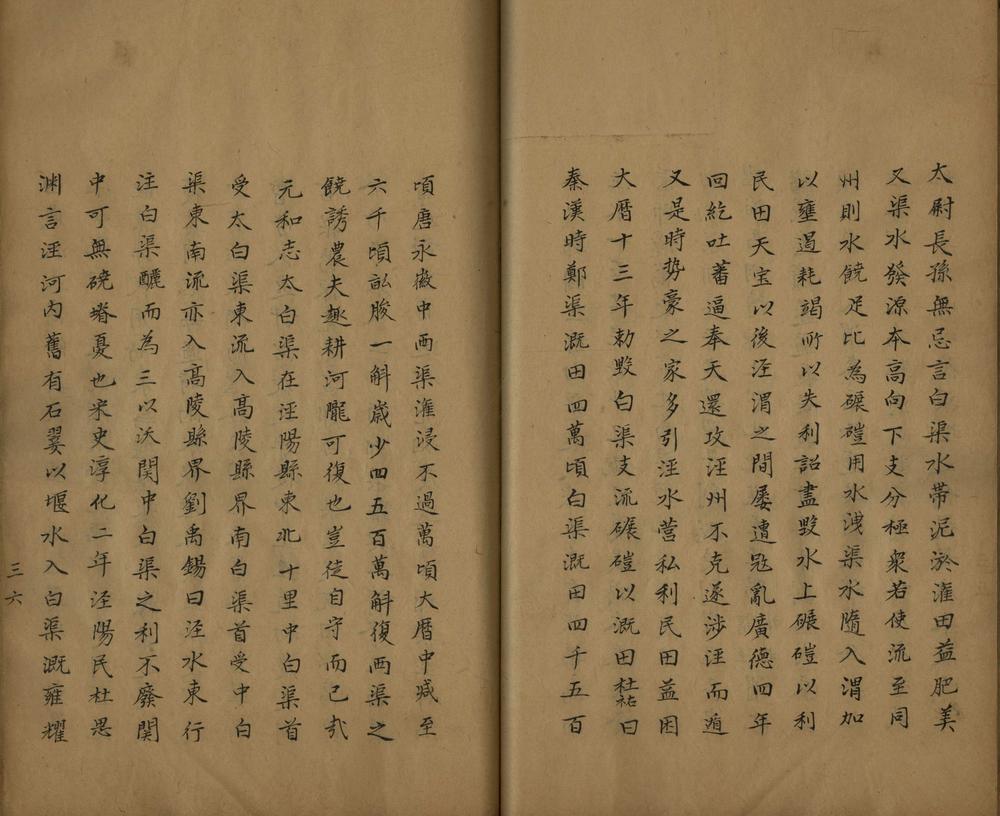 太尉長孫無忌言白渠水帶泥淤灌田益肥美
又渠水發源本高向下支分極衆若使流至同
州則水饒足比為碾磑用水洩渠水隨入渭加
以壅遏耗竭所以失利詔盡毀水上碾磑以利
民田天宝以後涇渭之間屡遭冦亂廣德四年
回紇吐蕃逼奉天還攻涇州不克遂涉涇而遁
又是時势豪之家多引涇水营私利民田益困
大曆十三年勅毀白渠支流碾磑以溉田杜祐曰
秦漢時鄭渠溉田四萬頃白渠溉田四千五百
頃唐永徽中両渠灌浸不過萬頃大暦中减至
六千頃畝朘一斛歲少四五百萬斛復両渠之
饒誘農夫趣耕河隴可復也豈徒自守而已㢤
元和志太白渠在涇陽縣東北十里中白渠首
受太白渠東流入髙陵縣界南白渠首受中白
渠東南流亦入髙陵縣界劉禹錫曰涇水東行
注白渠釃而為三以沃関中白渠之利不廢関
中可無磽塉憂也宋史淳化二年涇陽民杜思
渊言涇河内舊有石翣以堰水入白渠溉雍耀
三六